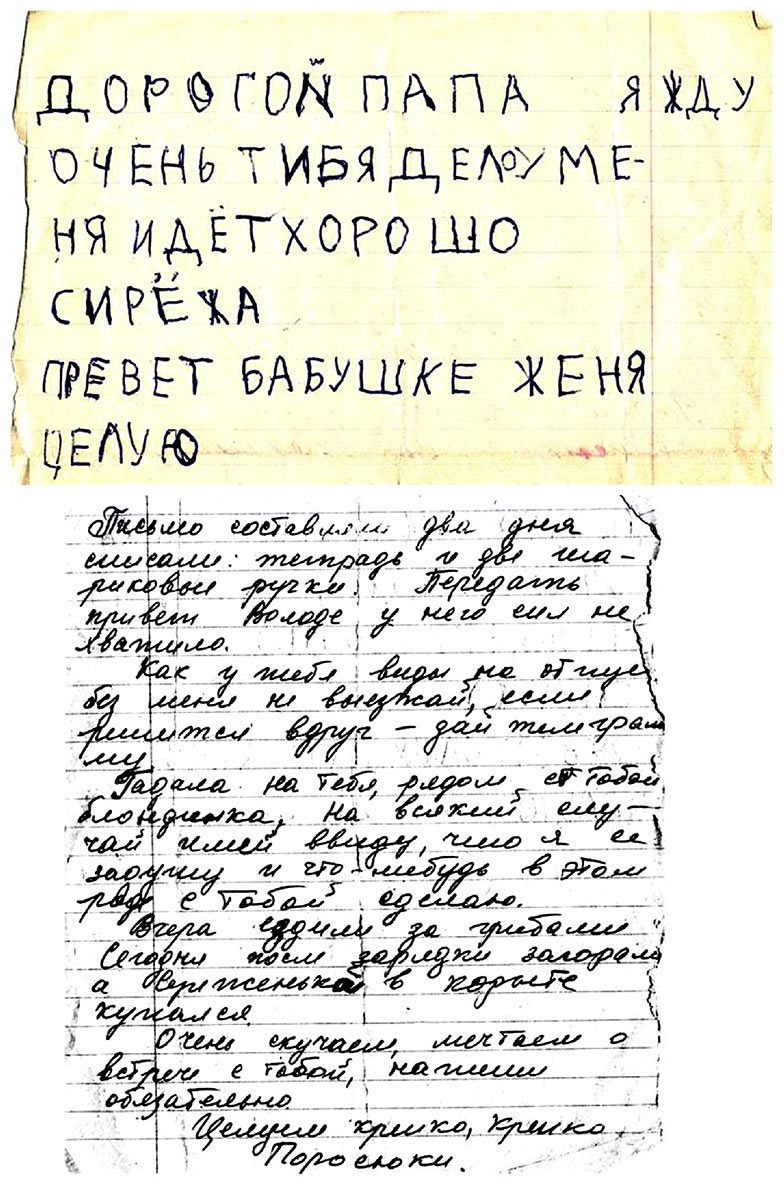 ДОРОГОЙ ПАПА Я ЖДУ
ОЧЕНЬ ТИБЯ ДЕЛО У МЕ-
НЯ ИДЁТ ХОРОШО
СИРЁЖА
ПРЕВЕТ БАБУШКЕ ЖЕНЯ
ЦЕЛУЮ
Письмо составляли два дня
списали: тетрадь и две ша-
риковые ручки. Передать
привет Володе у него сил не
хватило.
Как у тебя виды на отпуск
без меня не выезжай, если
решится вдруг – дай телеграм
му.
Гадала на тебя, рядом с тобой
блондинка, на всякий слу-
чай имей ввиду, что я ее
задушу и что-нибудь в этом
роде с тобой сделаю.
Вчера ездили за грибами
Сегодня после зарядки загорали
а Сереженька в корыте
купался.
Очень скучаем, мечтаем о
встрече с тобой, напиши
обязательно.
Целуем крепко, крепко.
Поросюки.